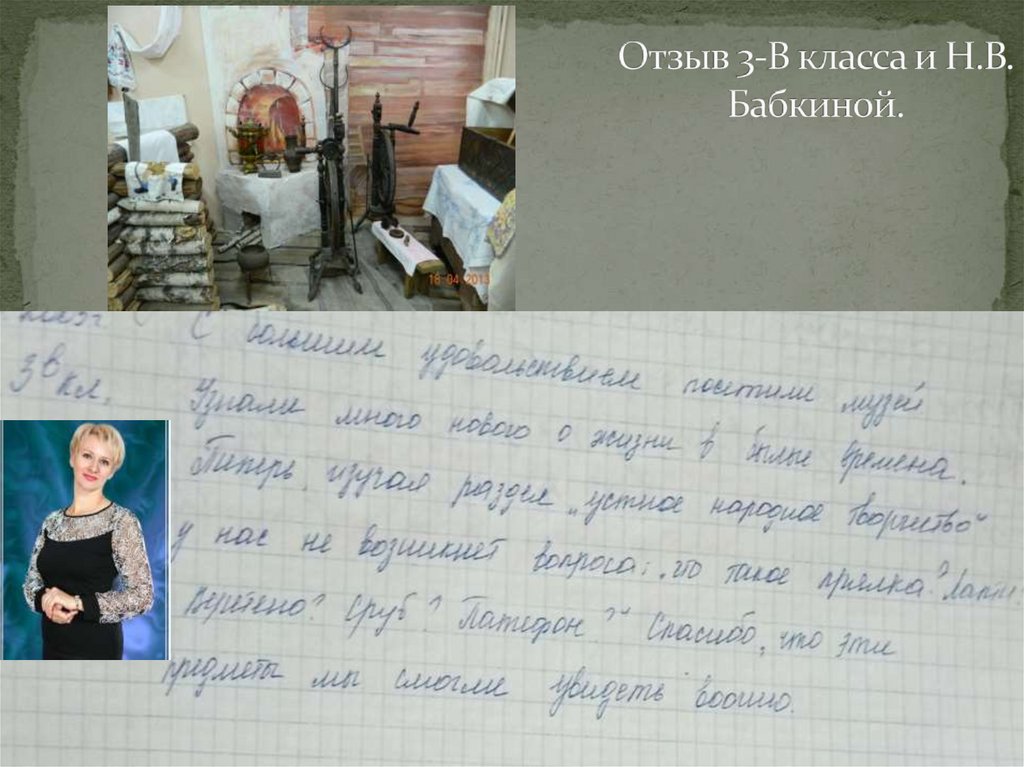 Отзыв 3-В класса и Н.В.
Бабкиной.
18 04 2013
С большим удовольствием посетили музей
3 в кл.
Узнали много нового о жизни в былые времена.
Теперь, изучая раздел „устное народное творчество"
у нас не возникнет вопроса: „что такое прялка? Лапти?
Веретено? Сруб? Патефон?" Спасибо, что эти
предметы мы смогли увидеть воочию.